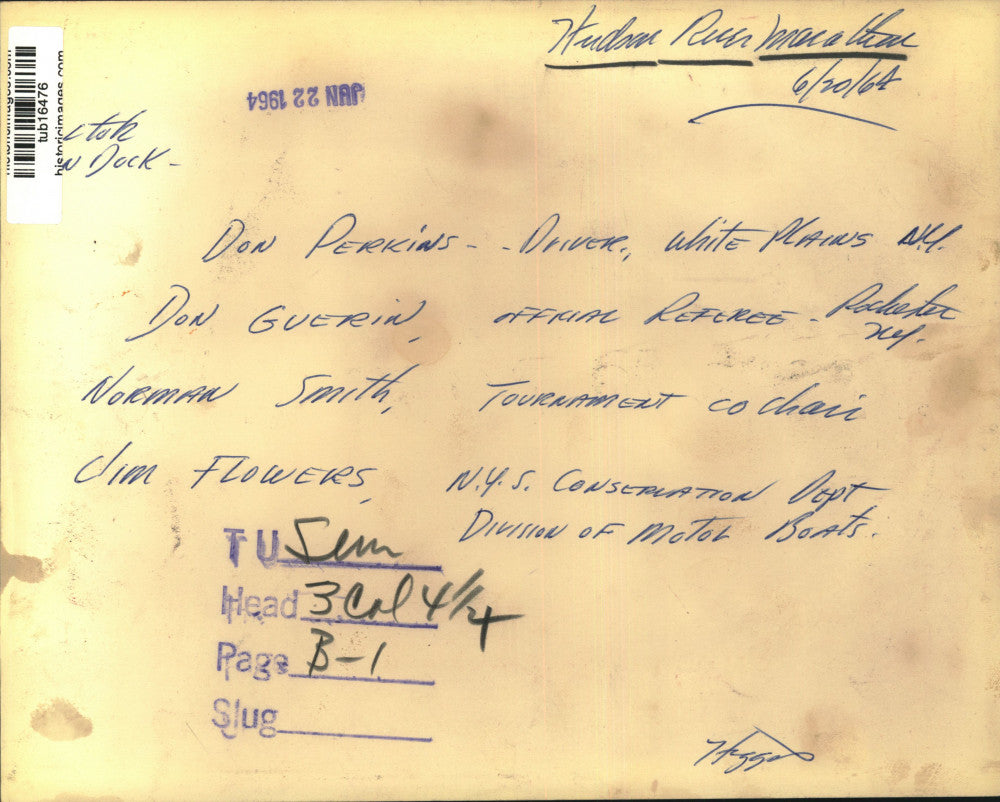 Hudson River Marathon
6/20/64
JUN 22 1964
historicimages.com
tub16476
historicimages.com
Dock -
Don Perkins - - Driver, White Plains N.Y.
Don Guerin, official Referee - Rochester
N.Y.
Norman Smith, Tournament co chair
Jim Flowers, N.Y.S. Conservation Dept
Division of Motor Boats.
TU Sem
Head 3 Col 4 1/4
Page B-1
Slug